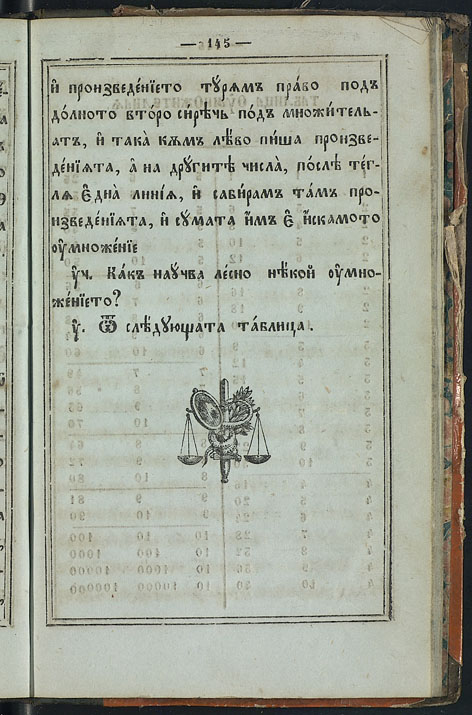 — 145 —
и҆ произведе́нїето тꙋрѧмъ пра́во подъ
до́лното вто́ро си́рѣчь по́дъ множи́тель-
атъ, и҆ така̀ къмъ лѣ́во пи́ша произве-
де́нїѧта, а҆ на дрꙋ́гитѣ числа̀, по́слѣ те́г-
лѧ є҆дна̀ ли́нїѧ, и҆ сабирамъ та́мъ про-
изведе́нїѧта, и҆ сꙋ́мата и҆́мъ є҆ и҆́скамото
ᲂу҆множе́нїе
ᲂу҆ч. Ка́къ наꙋ́чва ле́сно нѣ́кой ᲂу҆мно-
же́нїето?
ᲂу҆. Ѿ слѣ́дꙋющата та́блица.